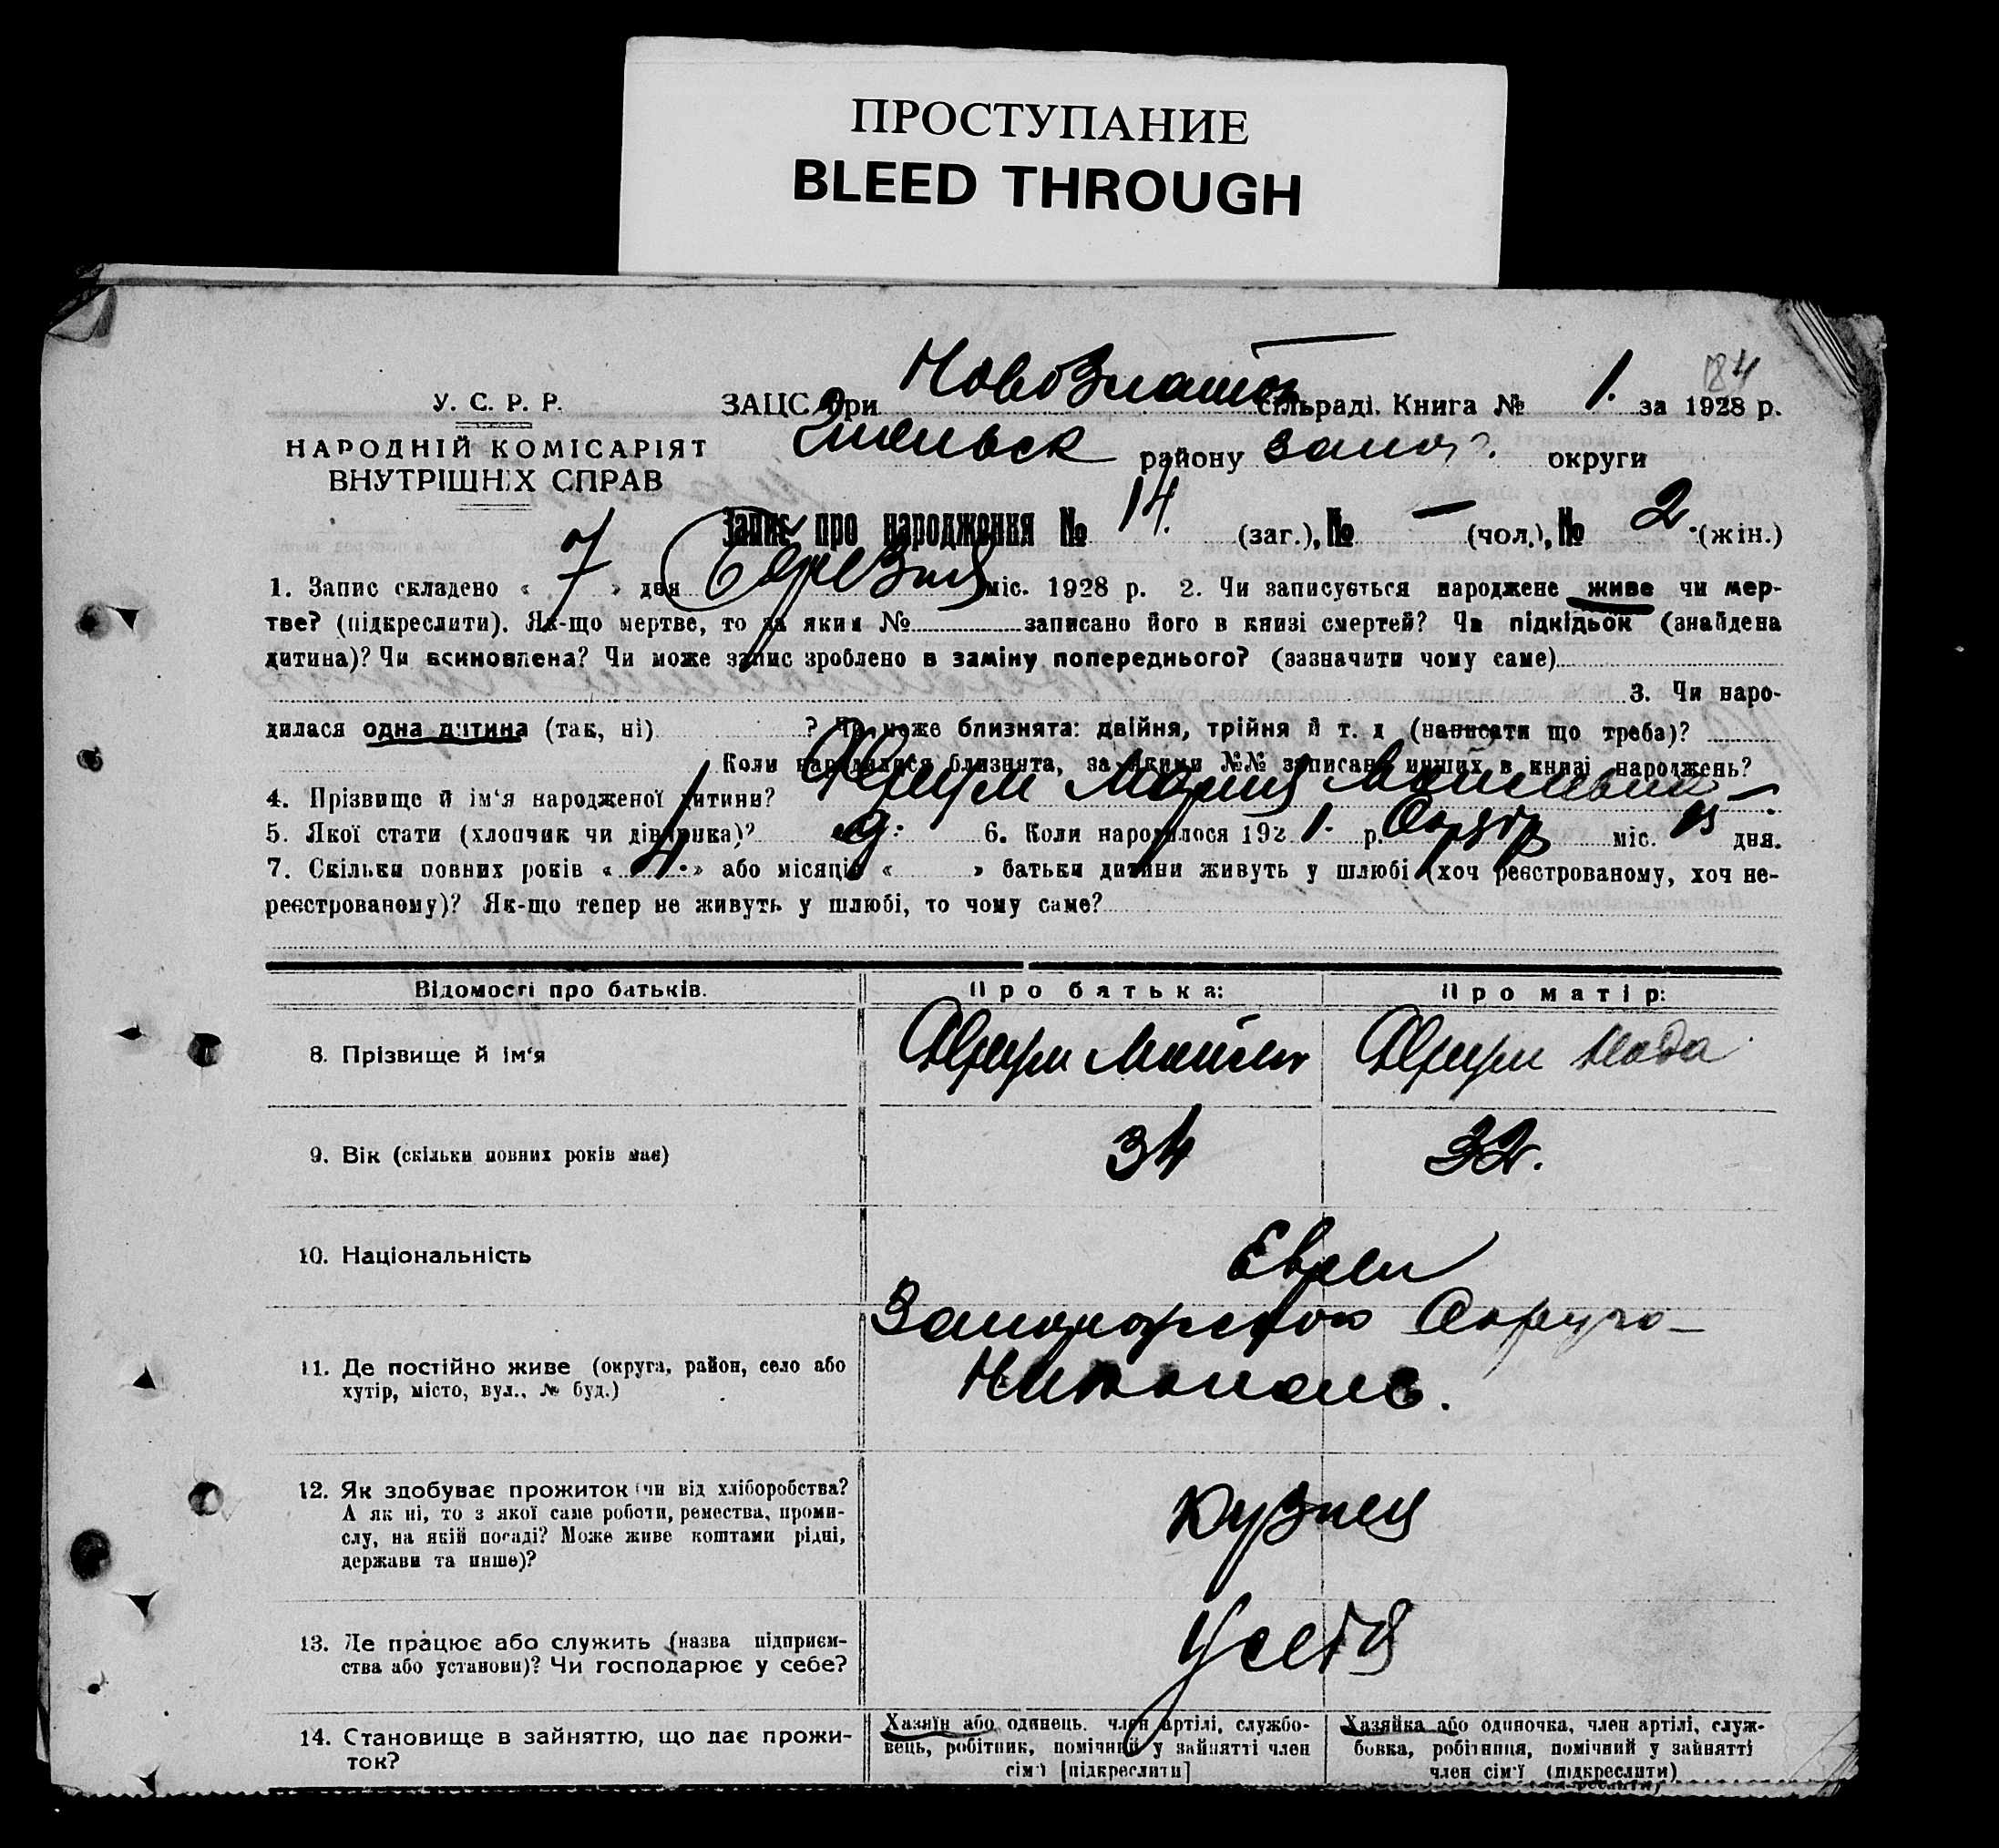 ПРОСТУПАНИЕ
BLEED THROUGH
84
У. С. Р. Р.
НАРОДНІЙ КОМІСАРІЯТ
ВНУТРІШНІХ СПРАВ
ЗАЦС при Новозлатоп сільраді. Книга № 1. за 1928 р.
району Запор. округи
Запис про народження № 14. (заг.), № — (чол.), № 2. (жін.)
1. Запис складено « 7 » дня Березня міс. 1928 р. 2. Чи записується народжене живе чи мер-
тве? (підкреслити). Як-що мертве, то за яким № записано його в книзі смертей? Чи підкідьок (знайдена
дитина)? Чи всиновлена? Чи може запис зроблено в заміну попереднього? (зазначити чому саме)
3. Чи наро-
дилася одна дитина (так, ні) ? Чи може близнята: двійня, трійня й т. д (написати що треба)?
Коли народилися близнята, за якими №№ записано инших в книзі народжень?
4. Прізвище й ім‘я народженої дитини? Мария
5. Якої стати (хлопчик чи дівчинка)? 6. Коли народилося 192 р. міс. дня.
7. Скільки повних років « » або місяців « » батьки дитини живуть у шлюбі (хоч реєстрованому, хоч не-
реєстрованому)? Як-що тепер не живуть у шлюбі, то чому саме?
Відомості про батьків. Про батька: Про матір:
8. Прізвище й ім‘я
9. Вік (скільки повних років має) 34 32.
10. Національність Евреи
11. Де постійно живе (округа, район, село або
хутір, місто, вул., № буд.)
Запорожской Округа —
Никополь.
12. Як здобуває прожиток (чи від хліборобства?
А як ні, то з якої саме роботи, ремества, проми-
слу, на якій посаді? Може живе коштами рідні,
держави та инше)?
Кузнец
13. Де працює або служить (назва підприєм-
ства або установи)? Чи господарює у себе?
У себя
14. Становище в зайняттю, що дає прожи-
ток?
Хазяїн або одинець, член артілі, службо-
вець, робітник, помічний у зайнятті член
сім‘ї [підкреслити]
Хазяйка або одиночка, член артілі, служ-
бовка, робітниця, помічний у зайнятті
член сім‘ї (підкреслити)